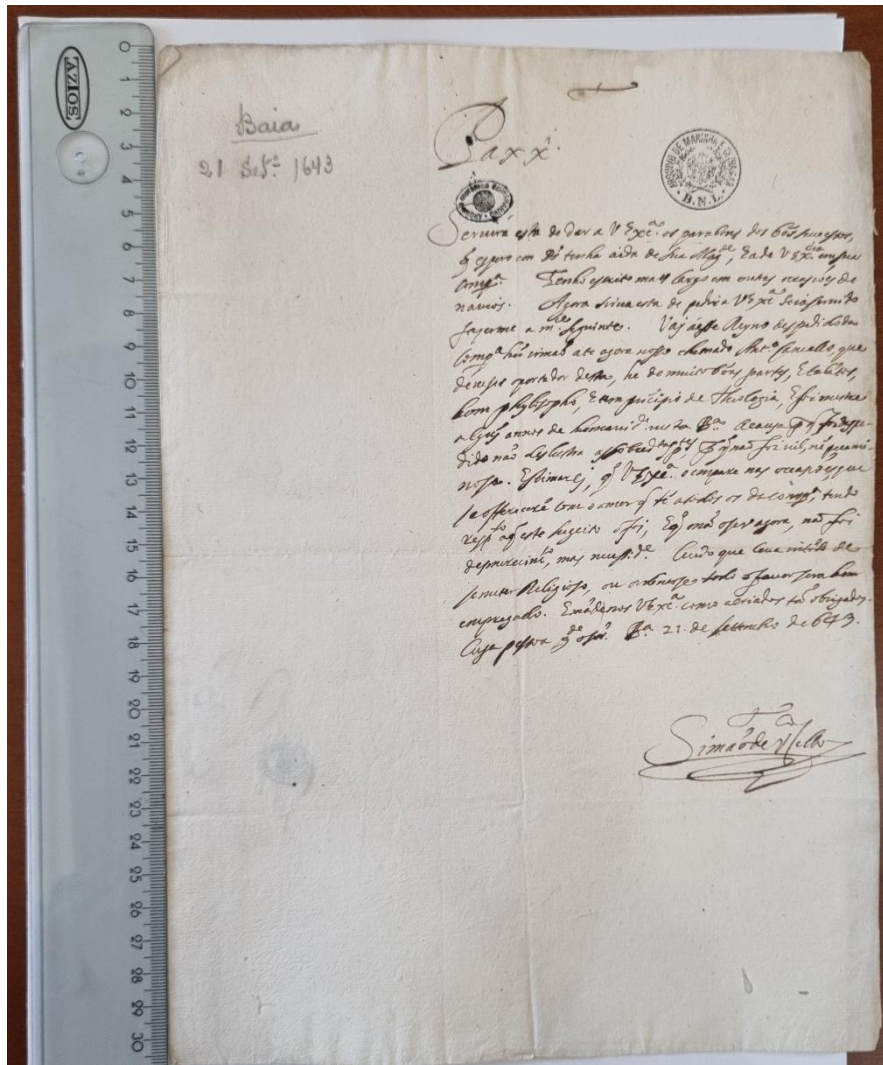 AZIOS
0 1 2 3 4 5 6 7 8 9 10 11 12 13 14 15 16 17 18 19 20 21 22 23 24 25 26 27 28 29 30
Baia
21 Setº 1643
Pax xⁱ
B.N.L.
Servirá esta de dar a V Exᶜⁱᵃ os parabens dos bõs successos,
q̃ espero em Dˢ tenha a ida de sua Magᵈᵉ, E a de V Exᶜⁱᵃ em sua
compᵃ. Tenho escrito mais largo em outras occasiões de
navios. Agora sirva esta de pedir a V Exᶜⁱᵃ seia servido
fazerme a m̃ᶜᵉ seguinte. Vaj a esse Reyno despedido da
Compᵃ hũ irmaõ ate agora nosso chamado Antº, que
deve ser o portador desta, he de muito bõas partes, E talentos,
bom phylosopho, E tem principio de Theologia, E foi mestre
alguñs annos de humanidᵉ nesta Bᵃ. A causa p q̃ foi despe-
dido não deslustra as sobreditas pᵗᵉˢ, p q̃ naõ foi vil, nẽ
Estimarej, q̃ V Exᶜⁱᵃ o empare nas occasioẽs que
se offerecerẽ com o amor q̃ tẽ a todos os da Compᵃ, tendo
respᵗᵒ a q̃ este sugeito o foi, E q̃ o naõ ser agora, naõ foi
desmerecimᵗᵒ, mas necessᵈᵉ. Cuido que leva intẽto de
se meter Religioso, ou ordenarse todo o favor sera bem
empregado. E mãdenos V Exᶜⁱᵃ como a criados taõ obrigados.
Cuja pessoa gᵈᵉ o sõr. Bᵃ 21. de settembro de 643.
Simaõ de